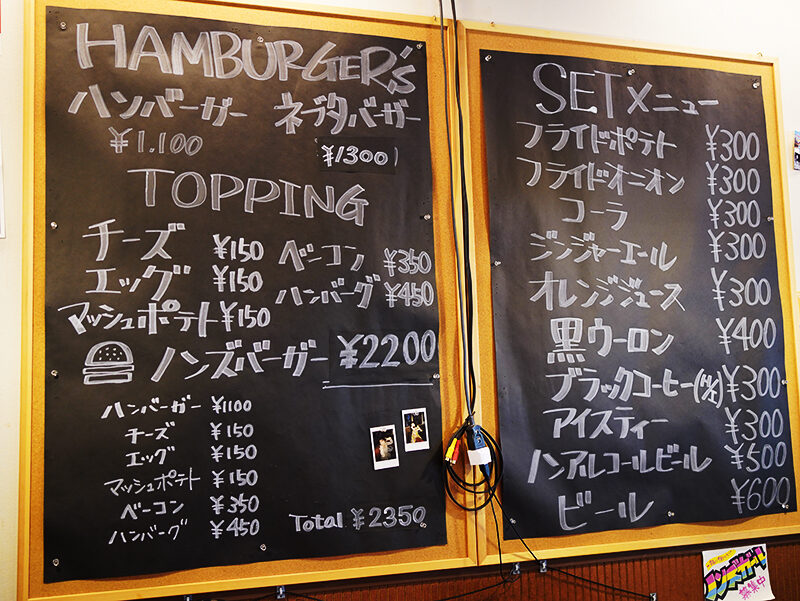 HAMBURGER's
ハンバーガー ネブタバーガー
¥1.100 ¥1300
TOPPING
チーズ ¥150 ベーコン ¥350
エッグ ¥150 ハンバーグ ¥450
マッシュポテト ¥150
ノンズバーガー ¥2200
ハンバーガー ¥1100
チーズ ¥150
エッグ ¥150
マッシュポテト ¥150
ベーコン ¥350
ハンバーグ ¥450
Total ¥2350
SETメニュー
フライドポテト ¥300
フライドオニオン ¥300
コーラ ¥300
ジンジャーエール ¥300
オレンジジュース ¥300
黒ウーロン ¥400
ブラックコーヒー(H/I) ¥300
アイスティー ¥300
ノンアルコールビール ¥500
ビール ¥600
募集中